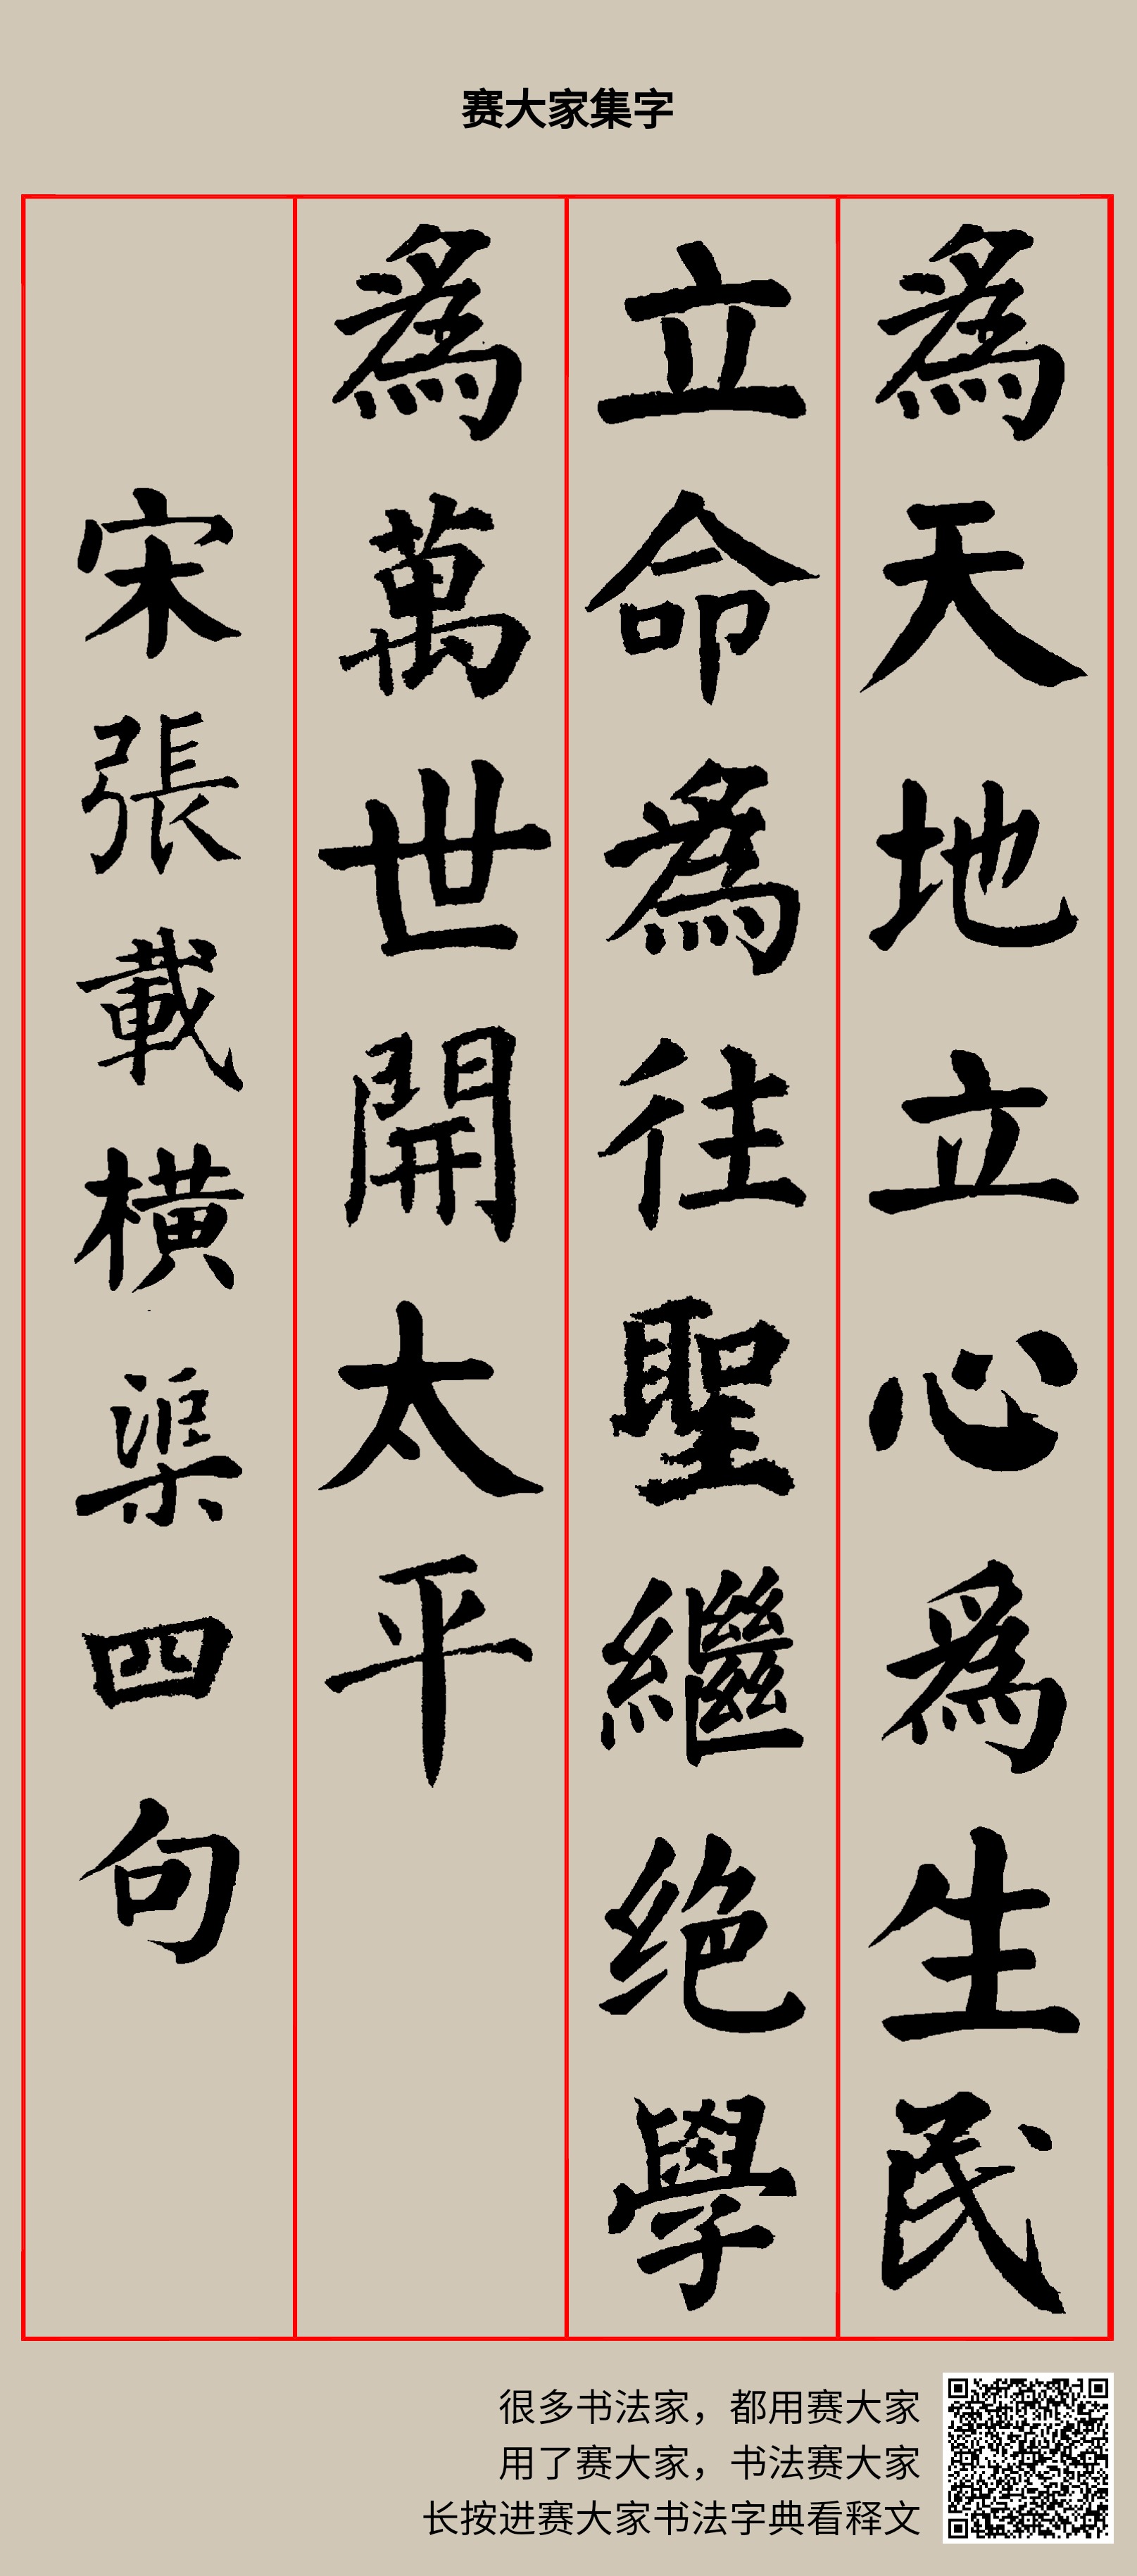 赛大家集字
爲天地立心爲生民
立命爲往聖繼绝學
爲萬世開太平
宋張載橫渠四句
很多书法家，都用赛大家
用了赛大家，书法赛大家
长按进赛大家书法字典看释文